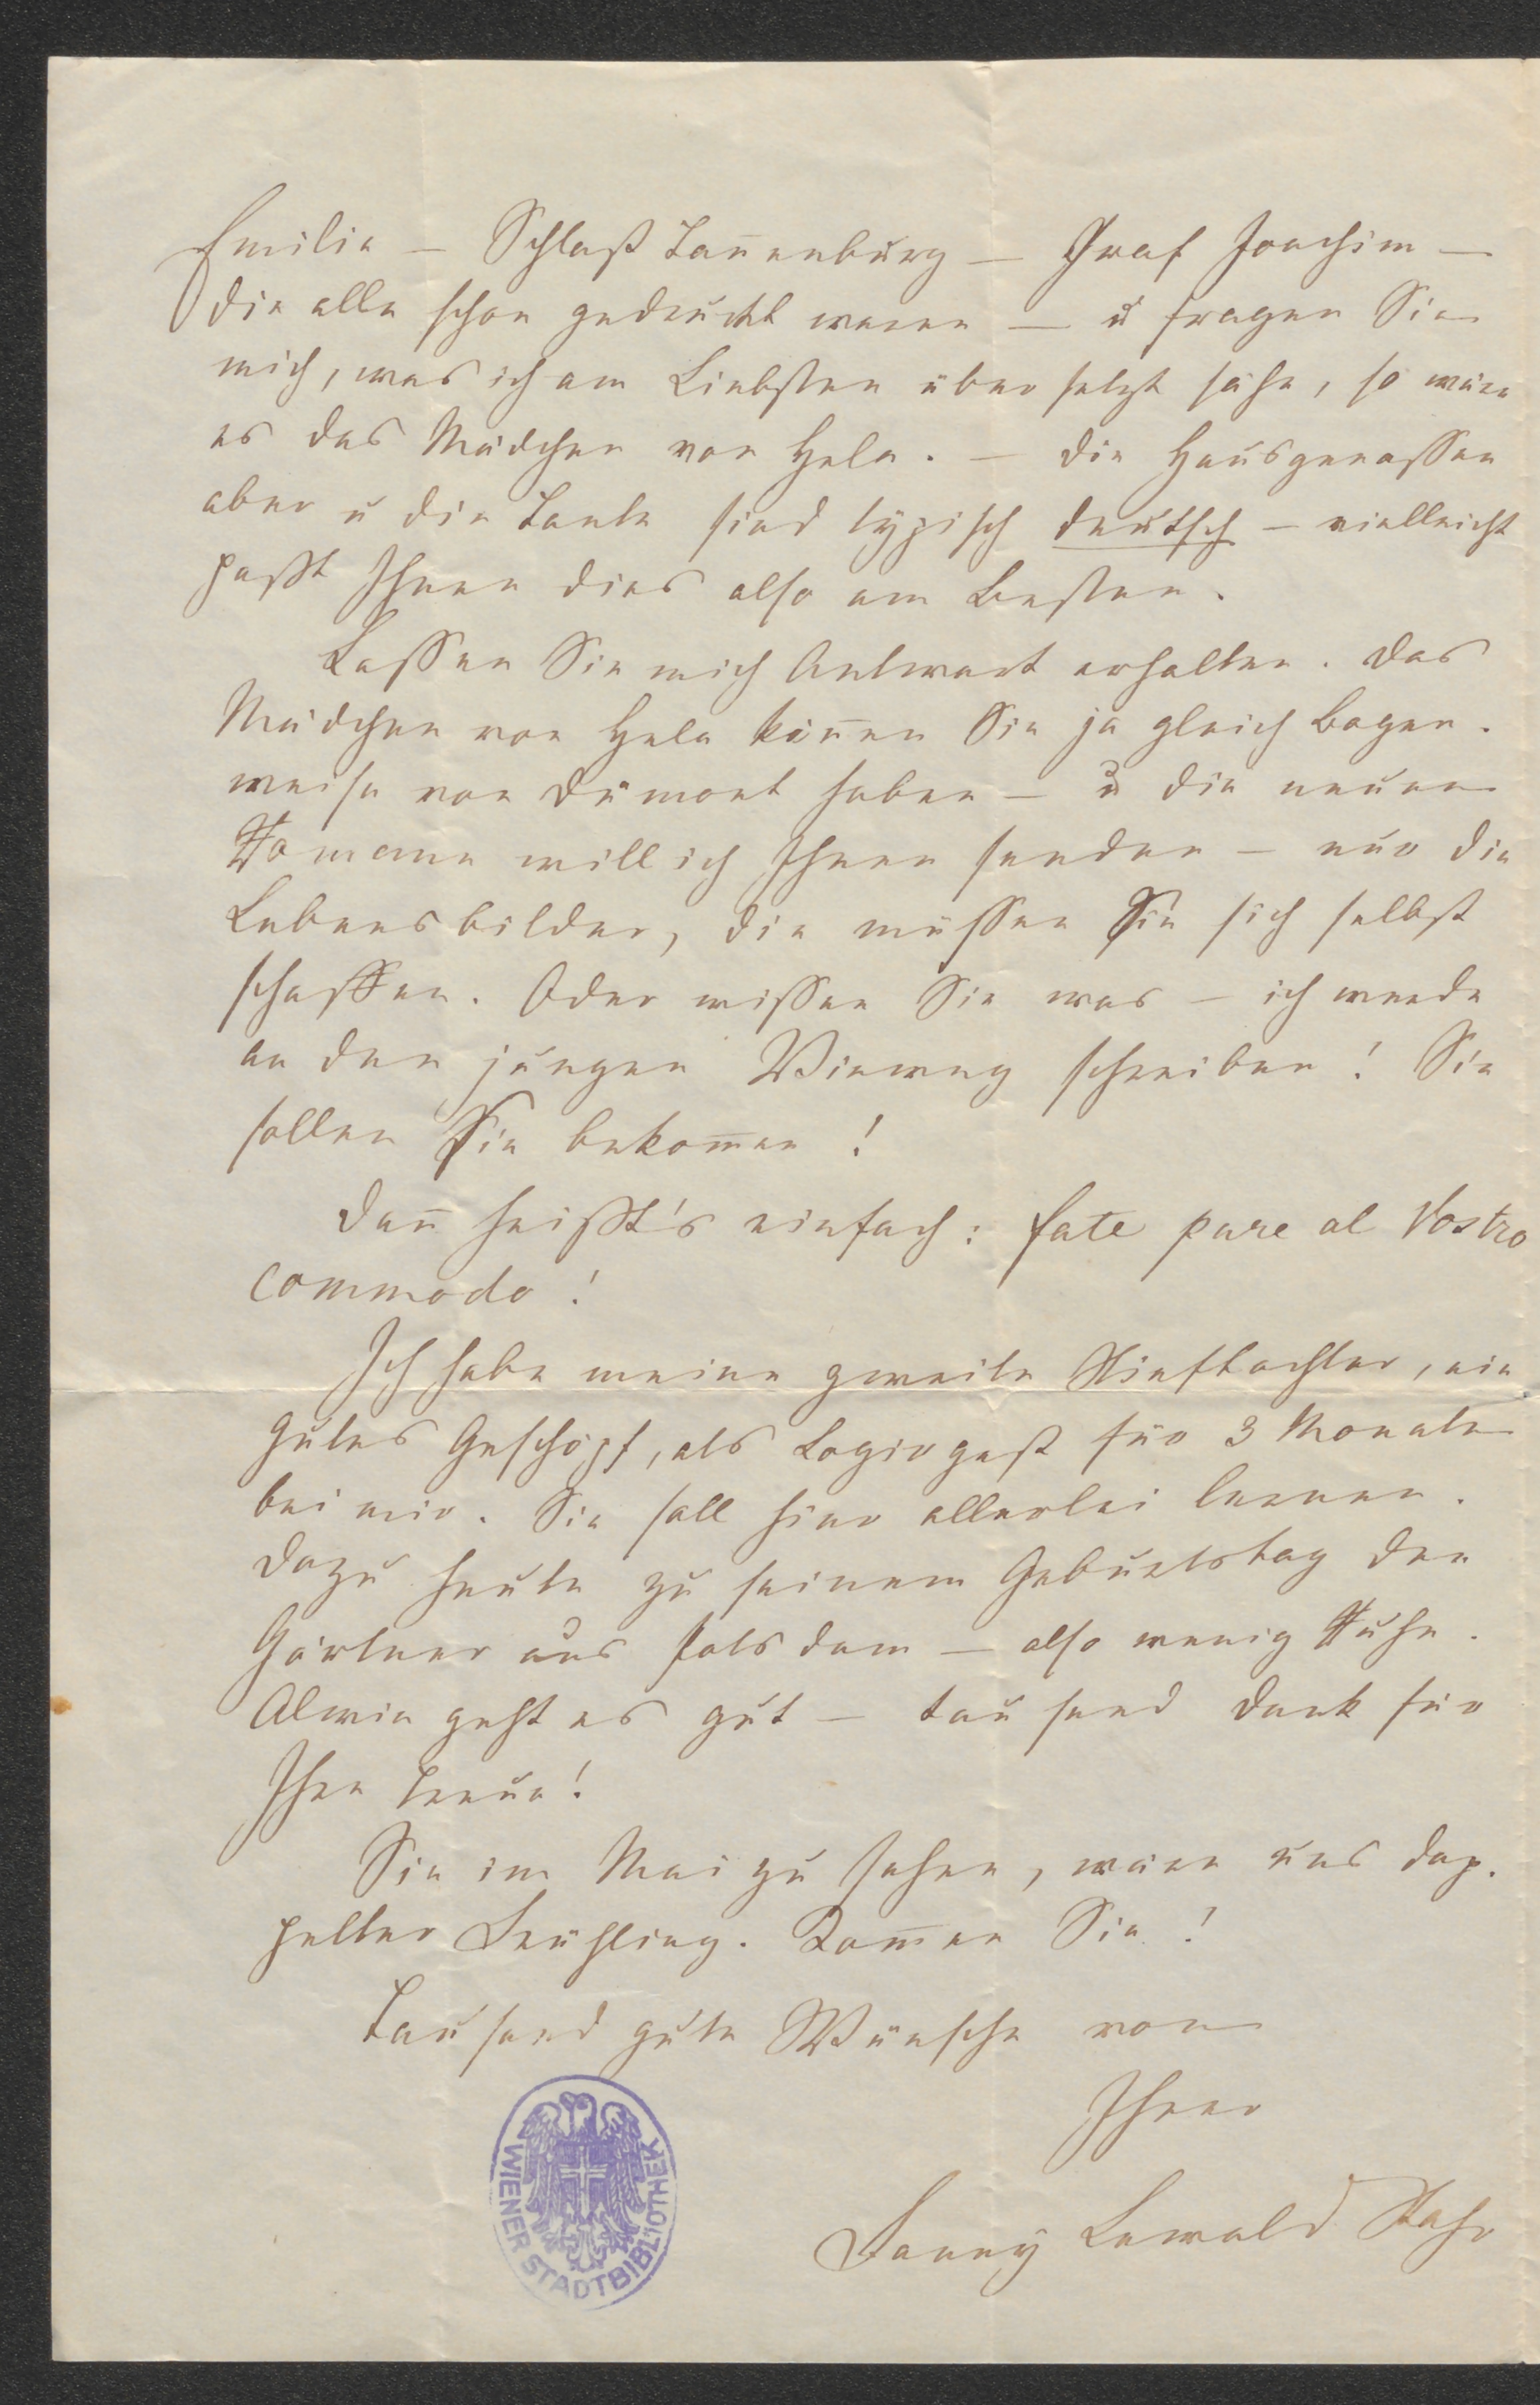 Emilie — Schloß Tannenburg — Graf Joachim —
die alle schon gedruckt waren — u fragen Sie
mich, was ich am Liebsten übersetzt sähe, so wäre
es das Mädchen von Hela. — Die Hausgenossen
aber u die Tante sind typisch deutsch — vielleicht
paßt Ihnen dies also am Besten.
Lassen Sie mich Antwort erhalten. Das
Mädchen von Hela köñen Sie ja gleich Bogen-
weise von Dumont haben — u die neuen
Romane will ich Ihnen senden — nur die
Lebensbilder, die müssen Sie sich selbst
schaffen. Oder wissen Sie was — ich werde
an den jungen Vieweg schreiben! Sie
sollen Sie bekom̄en!
Dañ heißt's einfach: fate pure al Vostro
commodo!
Ich habe meine zweite Stieftochter, ein
gutes Geschöpf, als Logirgast für 3 Monate
bei mir. Sie soll hier allerlei lernen.
Dazu heute zu seinem Geburtstag den
Gärtner aus Potsdam — also wenig Ruhe.
Alwin geht es gut — tausend Dank für
Ihre Treue!
Sie im Mai zu sehen, wäre uns dop-
pelter Frühling. Kom̄en Sie!
Tausend gute Wünsche von
Ihrer
Fanny Lewald Stahr
WIENER STADTBIBLIOTHEK